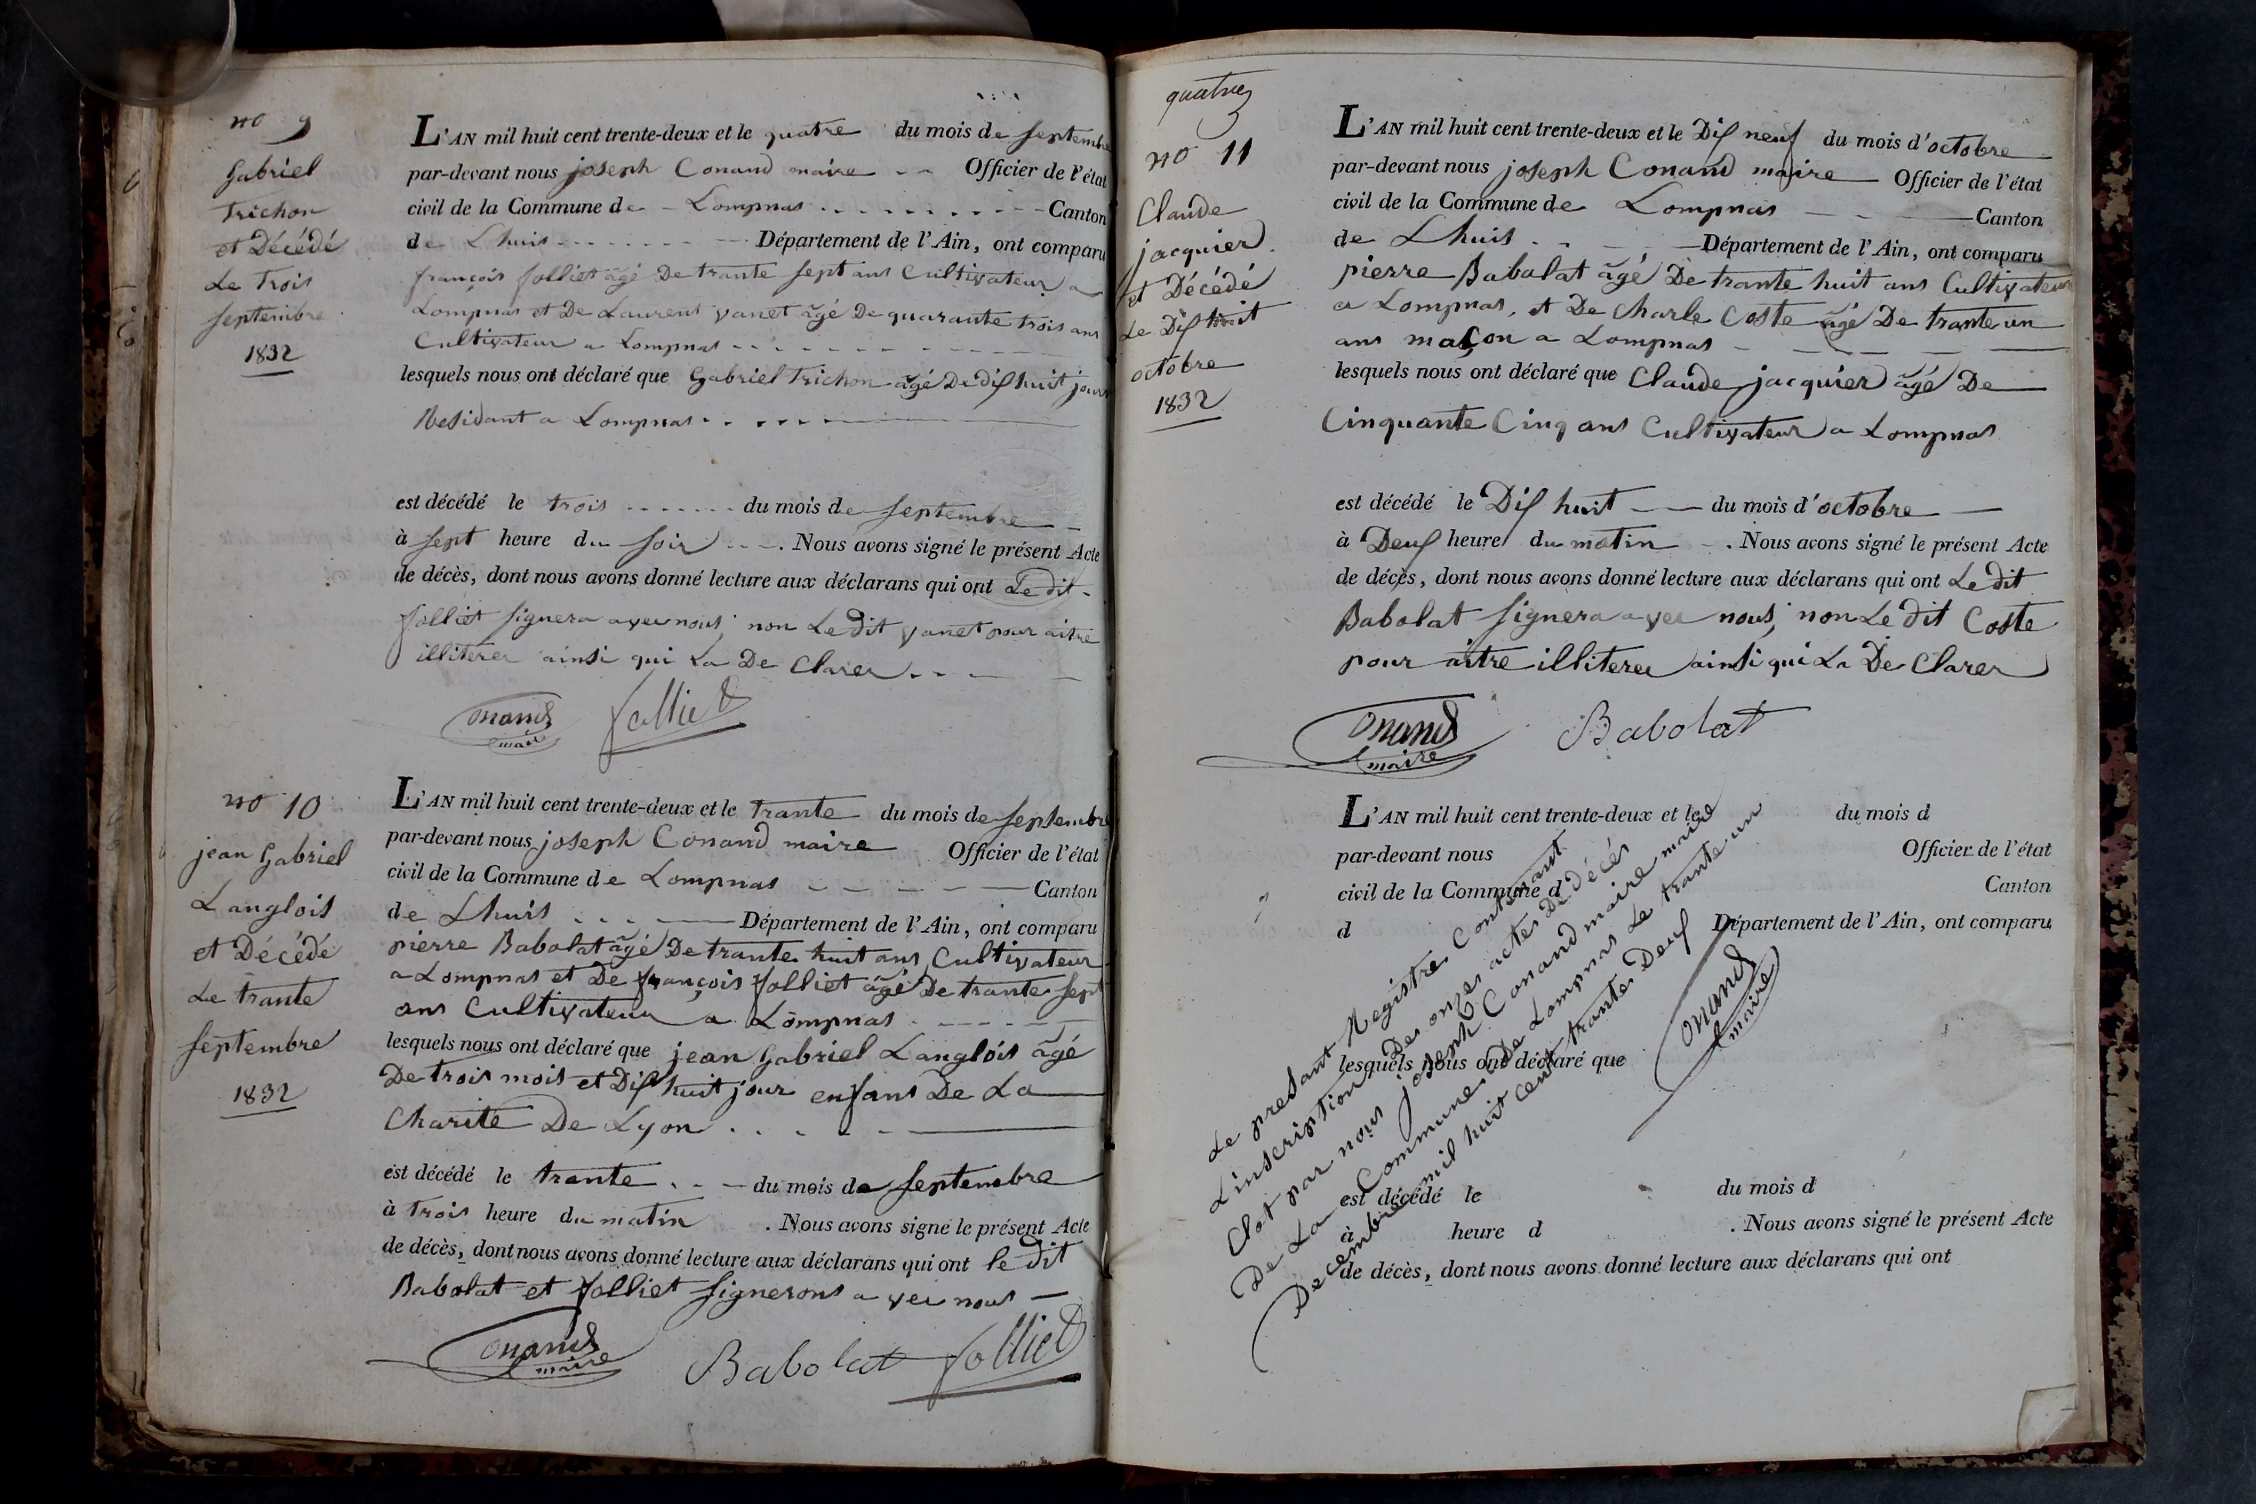 no 9
Gabriel
trichon
et Décédé
Le trois
septembre
1832
L'AN mil huit cent trente-deux et le quatre du mois de septembre
par-devant nous joseph Conand maire Officier de l'état
civil de la Commune de Lompnas Canton
de Lhuis Département de l'Ain, ont comparu
françois folliet âgé De trante sept ans Cultivateur a
Lompnas et De Laurent vanet âgé De quarante trois ans
Cultivateur a Lompnas
lesquels nous ont déclaré que Gabriel trichon âgé De dis huit jours
Residant a Lompnas
est décédé le trois du mois de septembre
à sept heure du soir. Nous avons signé le présent Acte
de décès, dont nous avons donné lecture aux déclarans qui ont Le dit
folliet signera avec nous, non Le dit vanet pour aitre
illiterer ainsi qui La De Clarer
Conand
maire
folliet
no 10
jean Gabriel
Langlois
et Décédé
Le trante
septembre
1832
L'AN mil huit cent trente-deux et le trante du mois de septembre
par-devant nous joseph Conand maire Officier de l'état
civil de la Commune de Lompnas Canton
de Lhuis Département de l'Ain, ont comparu
pierre Babolat âgé De trante huit ans Cultivateur
a Lompnas et De françois folliet âgé De trante sept
ans Cultivateur a Lompnas
lesquels nous ont déclaré que jean Gabriel Langlois âgé
De trois mois et Dis huit jour enfans De La
Charité De Lyon
est décédé le trante du mois de septembre
à trois heure du matin. Nous avons signé le présent Acte
de décès, dont nous avons donné lecture aux déclarans qui ont le dit
Babolat et folliet signerons avec nous
Conand
maire
Babolat folliet
quatre
no 11
Claude
jacquier
et Décédé
Le Dis huit
octobre
1832
L'AN mil huit cent trente-deux et le Dis neuf du mois d'octobre
par-devant nous joseph Conand maire Officier de l'état
civil de la Commune de Lompnas Canton
de Lhuis Département de l'Ain, ont comparu
pierre Babolat âgé De trante huit ans Cultivateur
a Lompnas, et De Charle Coste âgé De trante un
ans maçon a Lompnas
lesquels nous ont déclaré que Claude jacquier âgé De
Cinquante Cinq ans Cultivateur a Lompnas
est décédé le Dis huit du mois d'octobre
à Deus heure du matin. Nous avons signé le présent Acte
de décès, dont nous avons donné lecture aux déclarans qui ont Le dit
Babolat signera avec nous, non Le dit Coste
pour aitre illiterer ainsi qui La De Clarer
Conand
maire
Babolat
L'AN mil huit cent trente-deux et le du mois d
par-devant nous Officier de l'état
civil de la Commune d Canton
d Département de l'Ain, ont comparu
lesquels nous ont déclaré que
est décédé le du mois d
à heure d . Nous avons signé le présent Acte
de décès, dont nous avons donné lecture aux déclarans qui ont
Le presant Registre Contenant
L'inscription Des onzes actes De décés
Clot par nous joseph Conand maire maire
De La Commune De Lompnas Le trante un
Decembre mil huit cent trante Deus
Conand
maire